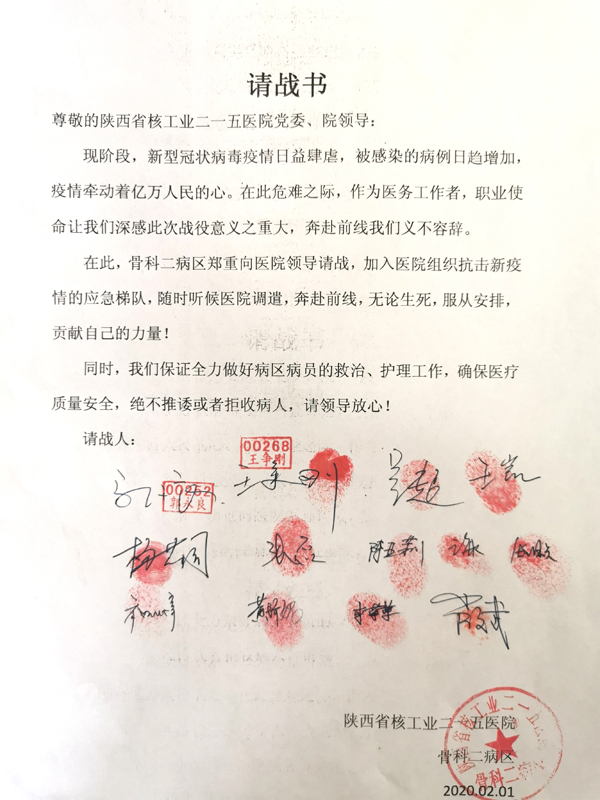 请战书
尊敬的陕西省核工业二一五医院党委、院领导：
现阶段，新型冠状病毒疫情日益肆虐，被感染的病例日趋增加，
疫情牵动着亿万人民的心。在此危难之际，作为医务工作者，职业使
命让我们深感此次战役意义之重大，奔赴前线我们义不容辞。
在此，骨科二病区郑重向医院领导请战，加入医院组织抗击新疫
情的应急梯队，随时听候医院调遣，奔赴前线，无论生死，服从安排，
贡献自己的力量！
同时，我们保证全力做好病区病员的救治、护理工作，确保医疗
质量安全，绝不推诿或者拒收病人，请领导放心！
请战人：
00268
王争刚
00252
郭永良
王争刚 吴超 王凯
陕西省核工业二一五医院
骨科二病区
2020.02.01
陕西省核工业二一五
骨科二